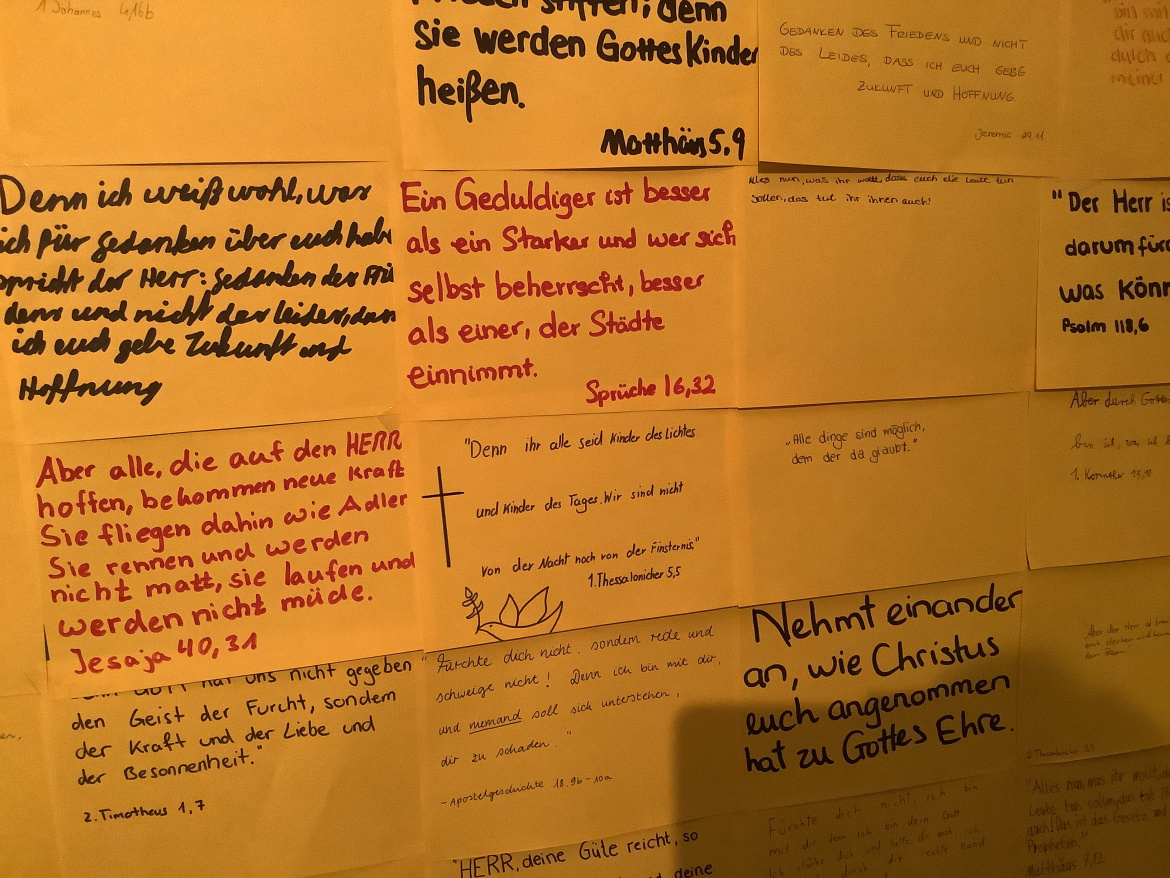 1 Johannes 4,16b
Frieden stiften; denn
sie werden Gottes Kinder
heißen.
Matthäus 5,9
Gedanken des Friedens und nicht
des Leides, dass ich euch gebe
Zukunft und Hoffnung.
Jeremia 29,11
dir
durch
Denn ich weiß wohl, was
ich für gedanken über euch habe
spricht der Herr: gedanken des Frie
dens und nicht des leides, dass
ich euch gebe Zukunft und
Hoffnung
Ein Geduldiger ist besser
als ein Starker und wer sich
selbst beherrscht, besser
als einer, der Städte
einnimmt.
Sprüche 16,32
Alles nun, was ihr wollt, dass euch die Leute tun
sollen, das tut ihr ihnen auch!
"Der Herr is
darum für
was könn
Psalm 118,6
Aber alle, die auf den HERR
hoffen, bekommen neue Kraft
Sie fliegen dahin wie Adler
Sie rennen und werden
nicht matt, sie laufen und
werden nicht müde.
Jesaja 40,31
"Denn ihr alle seid Kinder des Lichtes
und Kinder des Tages. Wir sind nicht
von der Nacht noch von der Finsternis."
1. Thessalonicher 5,5
"Alle dinge sind möglich,
dem der da glaubt."
Aber durch Gottes
bin ich, was ich b
1. Korinther 15,10
Gott hat uns nicht gegeben
den Geist der Furcht, sondern
der Kraft und der Liebe und
der Besonnenheit."
2. Timotheus 1,7
"Fürchte dich nicht, sondern rede und
schweige nicht! Denn ich bin mit dir,
und niemand soll sich unterstehen,
dir zu schaden."
- Apostelgeschichte 18,9b-10a
Nehmt einander
an, wie Christus
euch angenommen
hat zu Gottes Ehre.
Aber der Herr ist treu
"HERR, deine Güte reicht, so
deine
Fürchte dich nicht, ich bin
mit dir, denn ich bin dein Gott
Ich stärke dich und helfe dir auch, ich
dich durch die rechte Hand
"Alles nun, was ihr wollt, da
Leute tun sollen, das tut i
auch! Das ist das Gesetz und
Propheten."
Matthäus 7,12